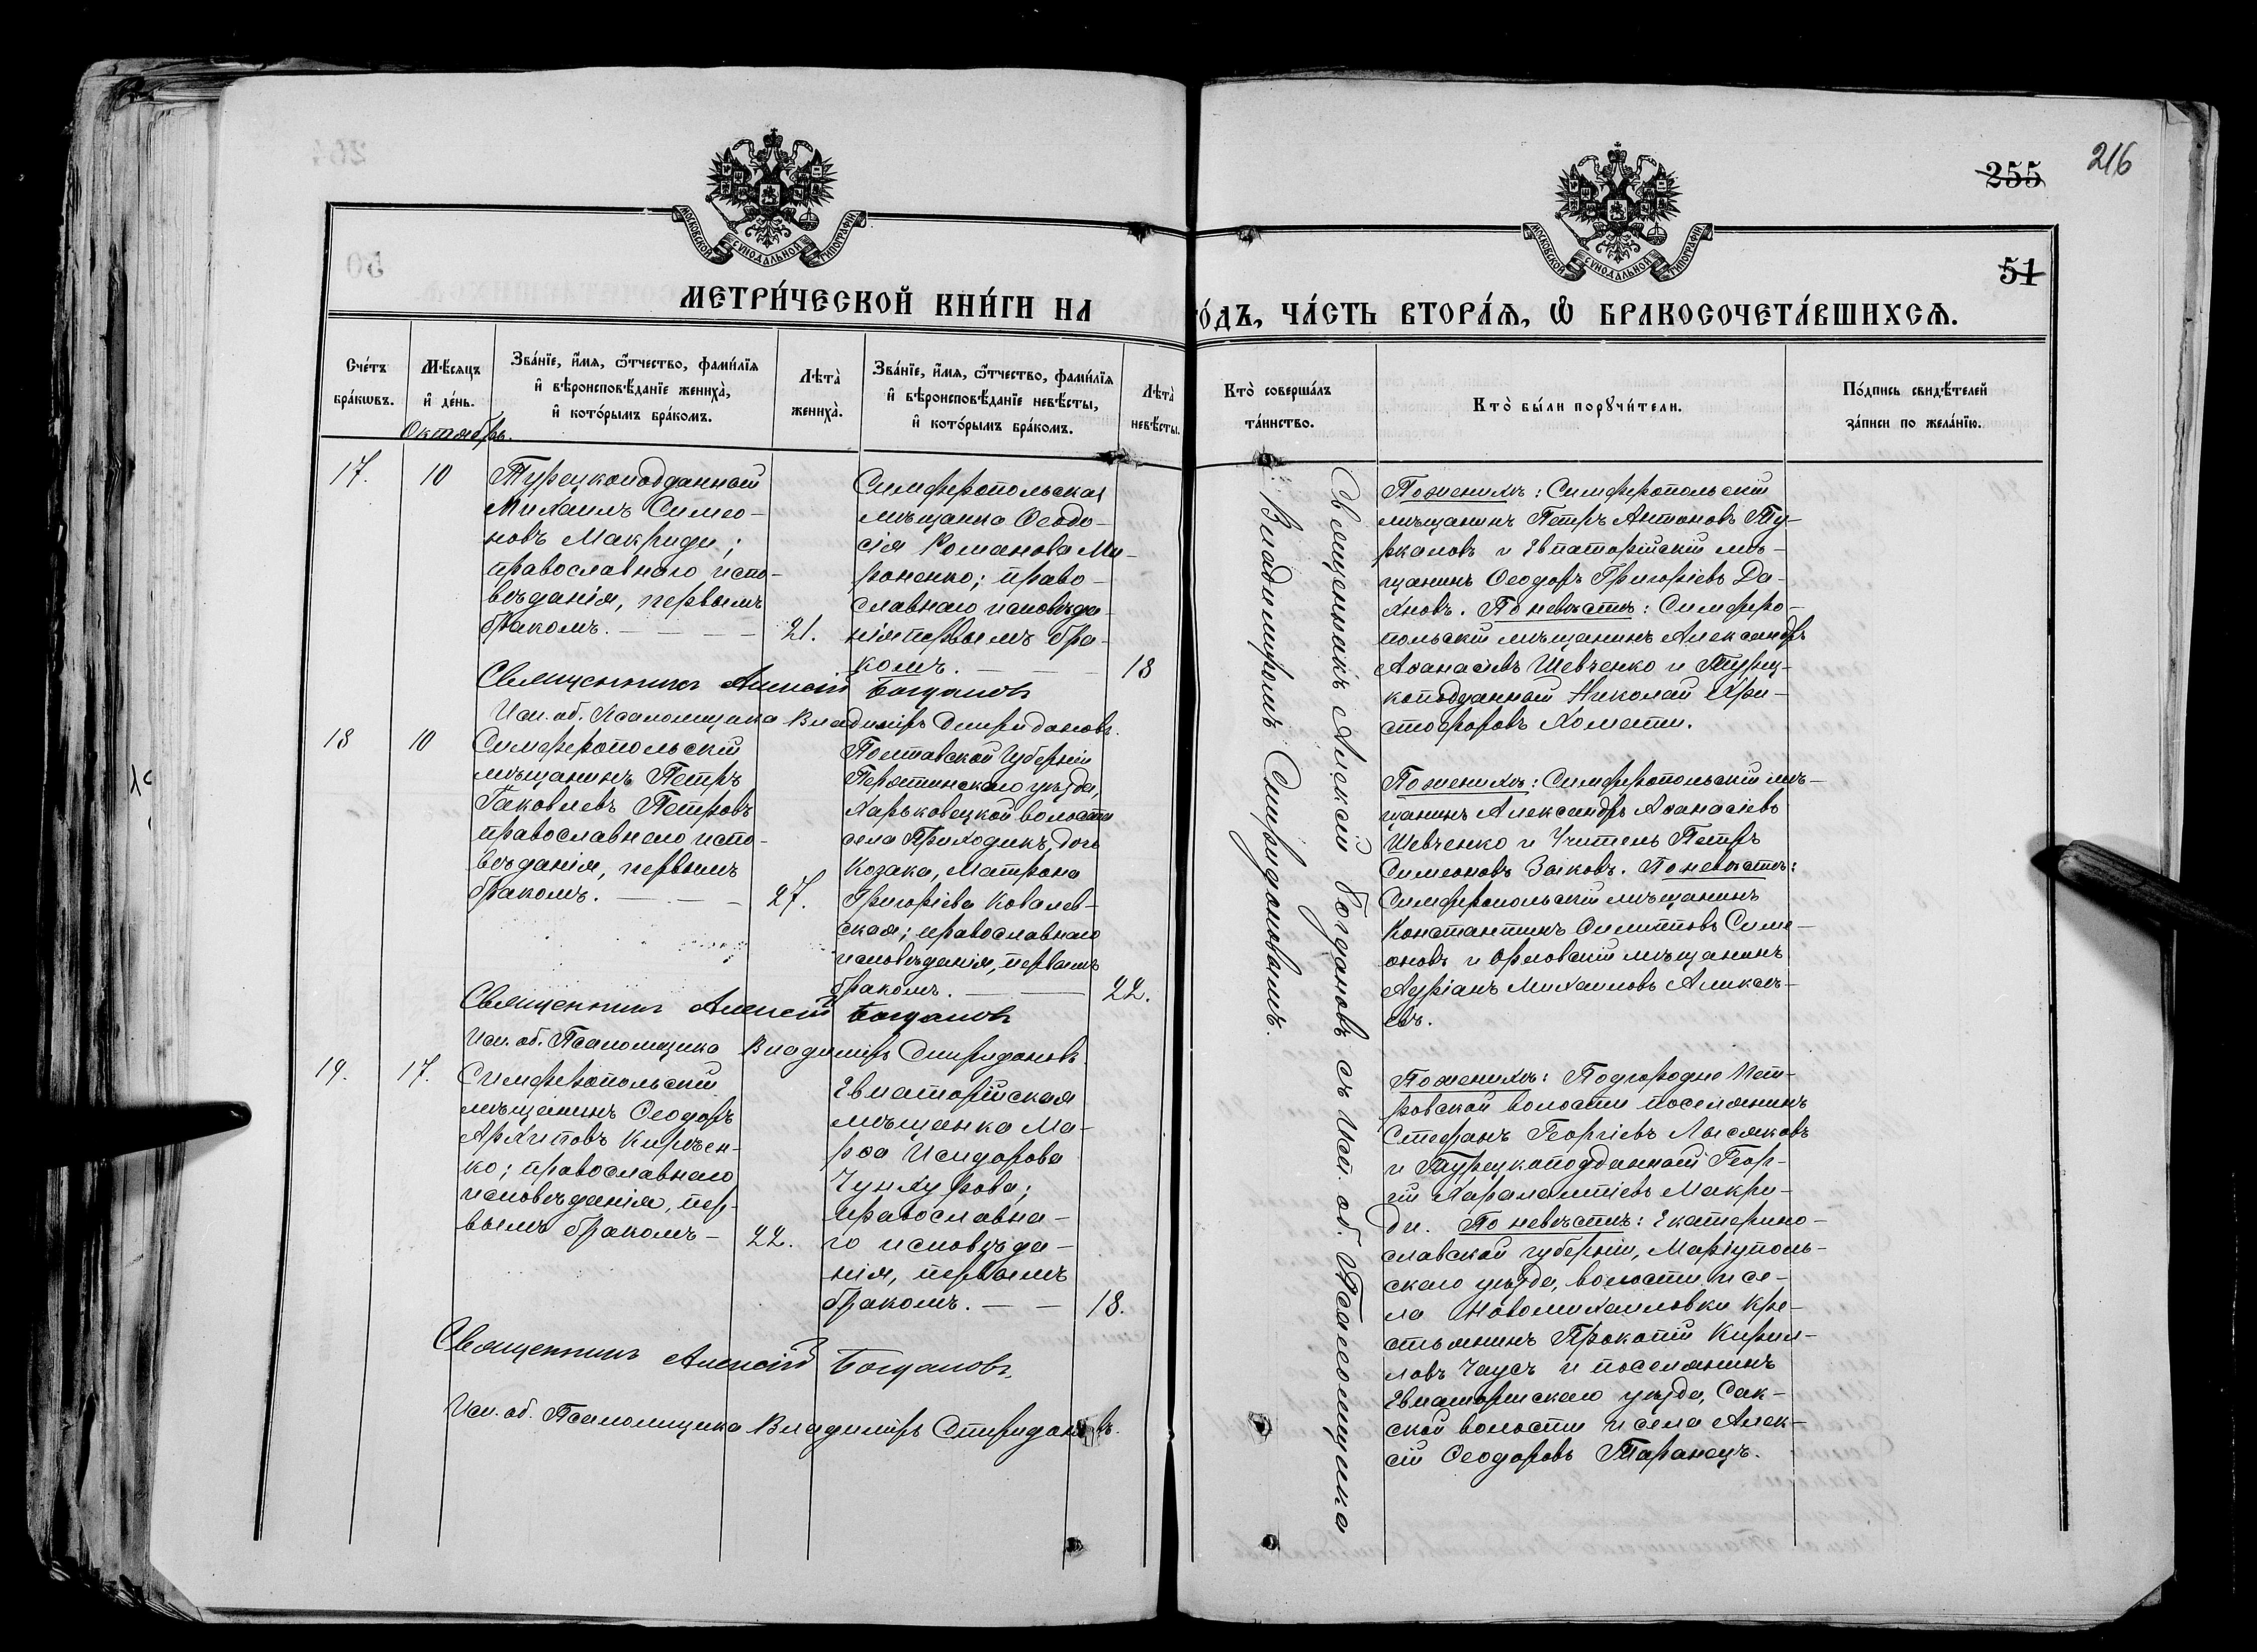 216
255
51
МОСКОВСКОЙ СѴНОДАЛЬНОЙ ТИПОГРАФІИ
МОСКОВСКОЙ СѴНОДАЛЬНОЙ ТИПОГРАФІИ
МЕТРИ́ЧЕСКОЙ КНИ́ГИ НА
О́ДЪ, ЧА́СТЬ ВТОРА́Я, Ѡ БРАКОСОЧЕТА́ВШИХСЯ.
Сче́тъ
бра́кѡвъ.
Мѣ́сяцъ
и҆ де́нь.
Зва́нїе, и҆́мя, ѻ҆́тчество, фами́лїя
и҆ вѣроисповѣ́данїе жениха̀,
и҆ кото́рымъ бра́комъ.
Лѣта̀
жениха̀.
Зва́нїе, и҆́мя, ѻ҆́тчество, фами́лїя
и҆ вѣроисповѣ́данїе невѣ́сты,
и҆ кото́рымъ бра́комъ.
Лѣта̀
невѣ́сты.
Кто̀ соверша́лъ
та́инство.
Кто̀ бы́ли порꙋчи́тели.
По́дпись свидѣ́телей
за́писи по жела́нїю.
Октябрь.
17.
10
Турецкоподданный
Михаилъ Симео-
новъ Макриди;
православнаго испо-
вѣданія, первымъ
бракомъ.
21.
Симферопольская
мѣщанка Ѳеодо-
сія Романова Ми-
роненко; право-
славнаго исповѣда-
нія первымъ бра-
комъ.
18
Священникъ Алексій Богдановъ
Исп. об. Псаломщика Владиміръ Спиридоновъ.
18
10
Симферопольскій
мѣщанинъ Петръ
Іаковлевъ Петровъ
православнаго испо-
вѣданія, первымъ
бракомъ.
27.
Полтавской Губерніи
Пирятинскаго уѣзда,
Харьковецкой волости
села Приходикъ, дочь
Козака, Матрона
Григоріева Ковалев-
ская; православнаго
исповѣданія, первымъ
бракомъ.
22.
Священникъ Алексій Богдановъ
Исп. об. Псаломщика Владиміръ Спиридоновъ.
19.
17.
Симферопольскій
мѣщанинъ Ѳеодоръ
Архиповъ
ко; православнаго
исповѣданія, пер-
вымъ бракомъ
22.
Евпаторійская
мѣщанка Ма-
рѳа Исидорова
Чунхурова;
православна-
го исповѣда-
нія, первымъ
бракомъ.
18.
Священникъ Алексій Богдановъ
Исп. об. Псаломщика Владиміръ Спиридоновъ.
Священникъ Алексій Богдановъ съ Исп. об. Псаломщика
Владиміромъ Спиридоновымъ.
По женихѣ: Симферопольскій
мѣщанинъ Петръ Антоновъ Ту-
ркаловъ и Евпаторійскій мѣ-
щанинъ Ѳеодоръ Григоріевъ Да-
хновъ. По невѣстѣ: Симферо-
польскій мѣщанинъ Александръ
Аѳанасіевъ Шевченко и Турец-
коподданный Николай Хри-
стофоровъ
По женихѣ: Симферопольскій мѣ-
щанинъ Александръ Аѳанасіевъ
Шевченко и Учитель Петръ
Симеоновъ По невѣстѣ:
Симферопольскій мѣщанинъ
Константинъ Симе-
оновъ и Орловскій мѣщанинъ
Адріанъ Михаиловъ
евъ.
По женихѣ: Подгородне Пет-
ровской волости поселянинъ
Стефанъ Георгіевъ
и Турецкоподданный Геор-
гій Харалампіевъ Макри-
ди. По невѣстѣ: Екатерино-
славской губерніи, Маріуполь-
скаго уѣзда, волости и се-
ла Новомихаиловки кре-
стьянинъ Прокопій Кирил-
ловъ Чаусъ и поселянинъ
Евпаторійскаго уѣзда, Сак-
ской волости и села Алек-
сій Ѳеодоровъ Таранецъ.